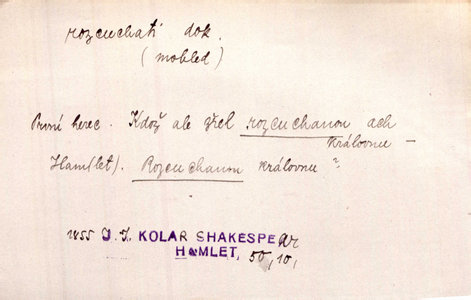 rozcuchati dok.
(mobled)
První herec. Kdož ale zřel rozcuchanou ach
královnu –
Ham(let). Rozcuchanou královnu?
1855 J. J. KOLAR SHAKESPEAR
HAMLET, 50, 10,